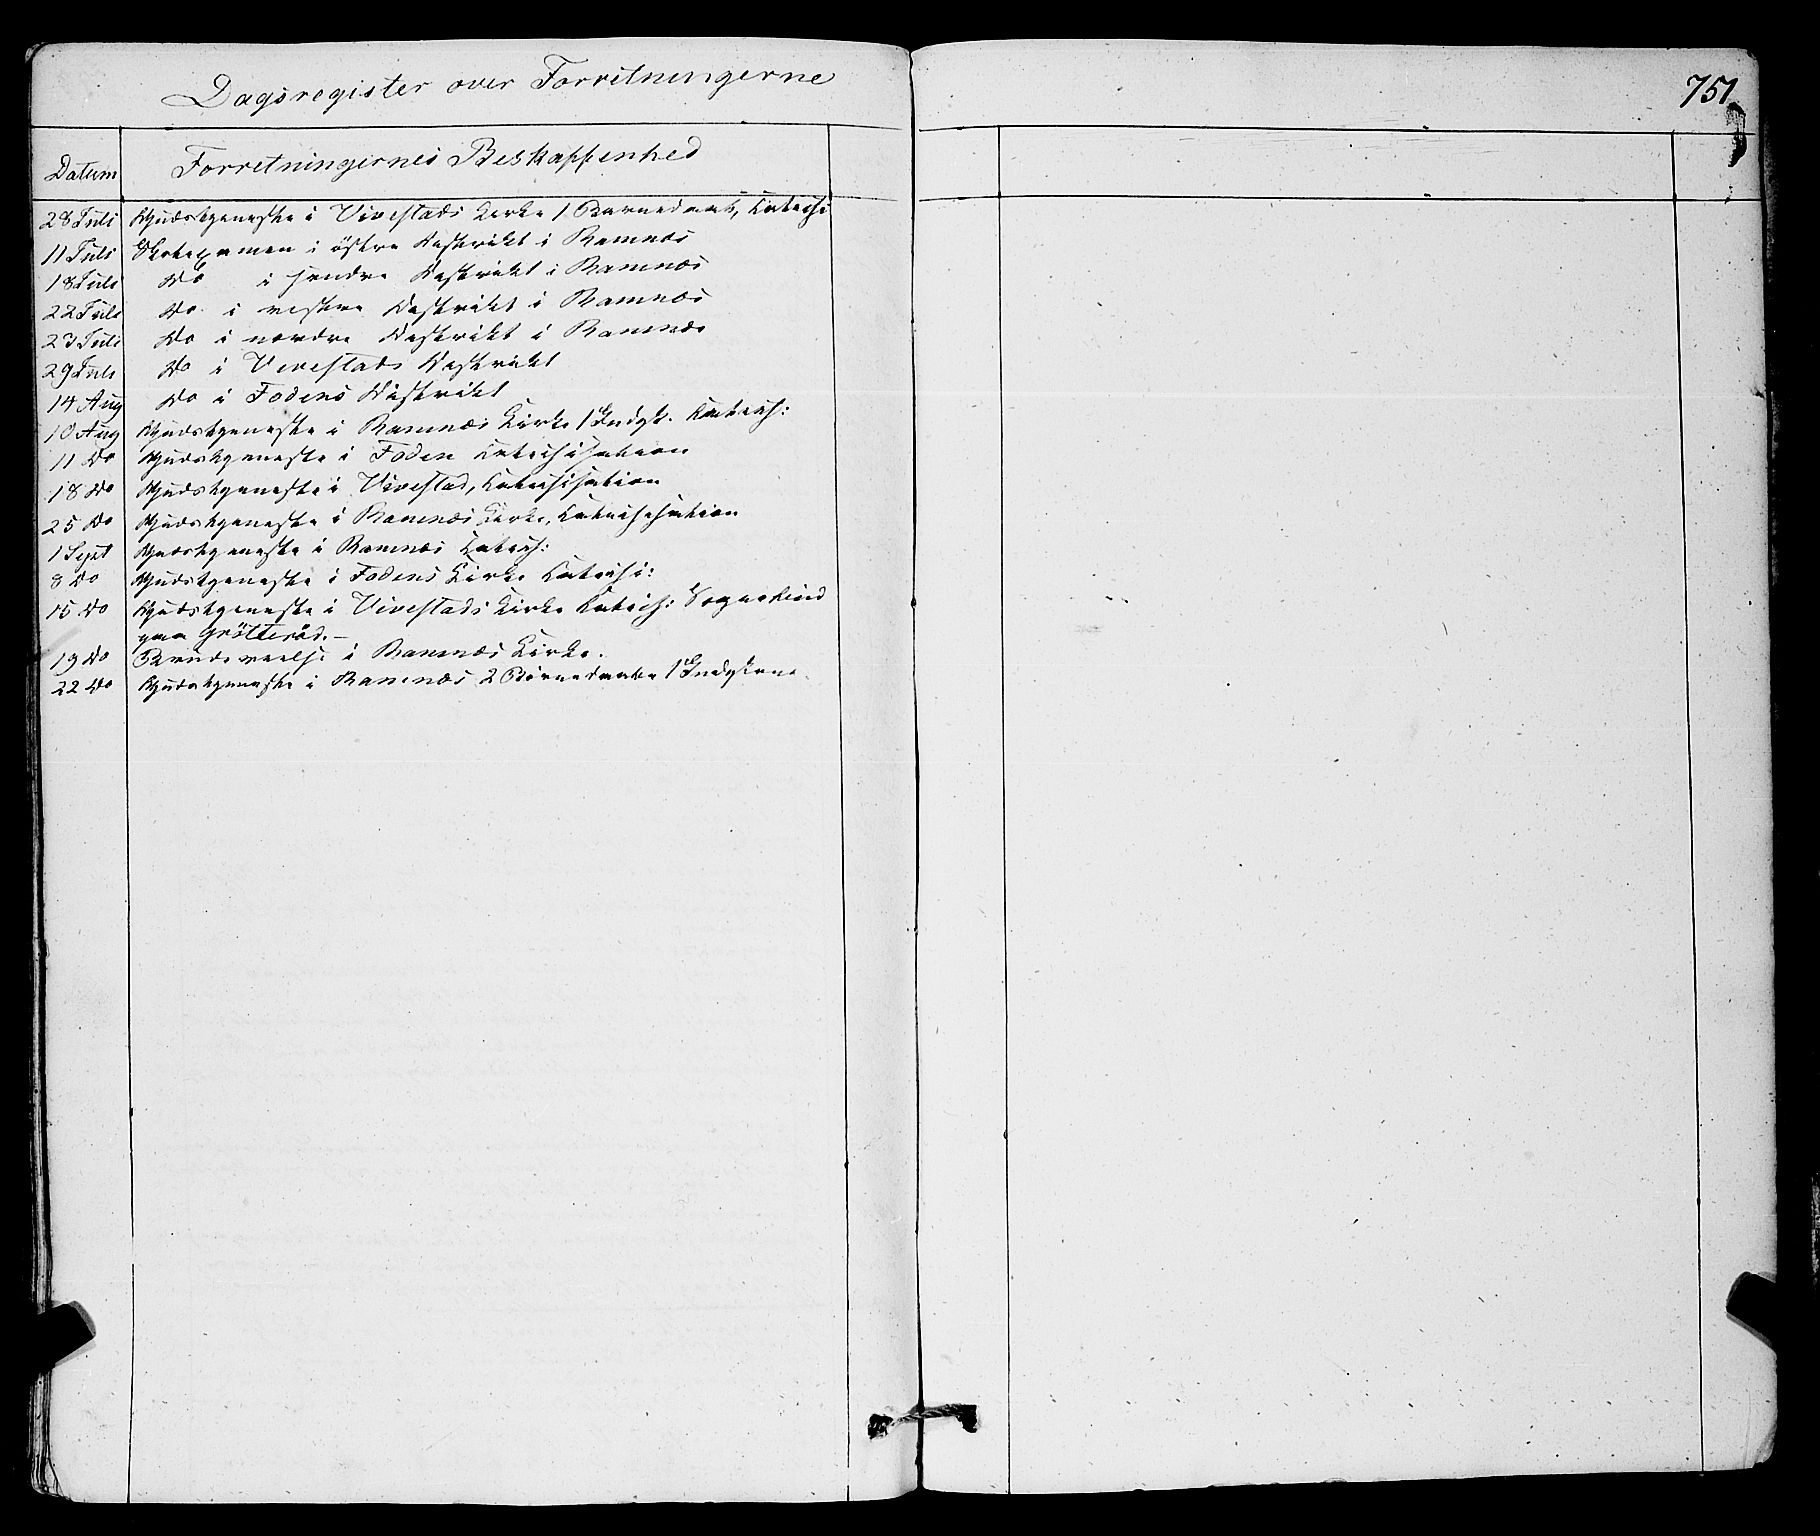 Dagsregister over Forretningerne
751
Datum Forretningernes Beskaffenhed
28 Juli Gudstjeneste i Vivestads Kirke 1 Barnedaab, Catechi
11 Juli Skoleexamen i östre Distrikt i Ramnæs
18 Juli Do i søndre Distrikt i Ramnæs
22 Juli Do. i vestre Distrikt i Ramnæs
23 Juli Do i nordre Distrikt i Ramnæs
29 Juli Do i Vivestads Distrikt
14 Aug Do i Fodens Distrikt
10 Aug Gudstjeneste i Ramnæs Kirke 1 Indgk. Catech:
11 Do Gudstjeneste i Foden Catechisation
18 Do Gudstjeneste i Vivestad, Catechisation
25 Do Gudstjeneste i Ramnæs Kirke, Catechisation
1 Sept Gudstjeneste i Ramnæs Catech:
8 Do Gudstjeneste i Fodens Kirke Catechi:
15 Do Gudstjeneste i Vivestads Kirke Catech: Sognebud
paa Grötteröd.—
19 Do Brudevielse i Ramnæs Kirke.
22 Do Gudstjeneste i Ramnæs 2 Börnedaabe 1